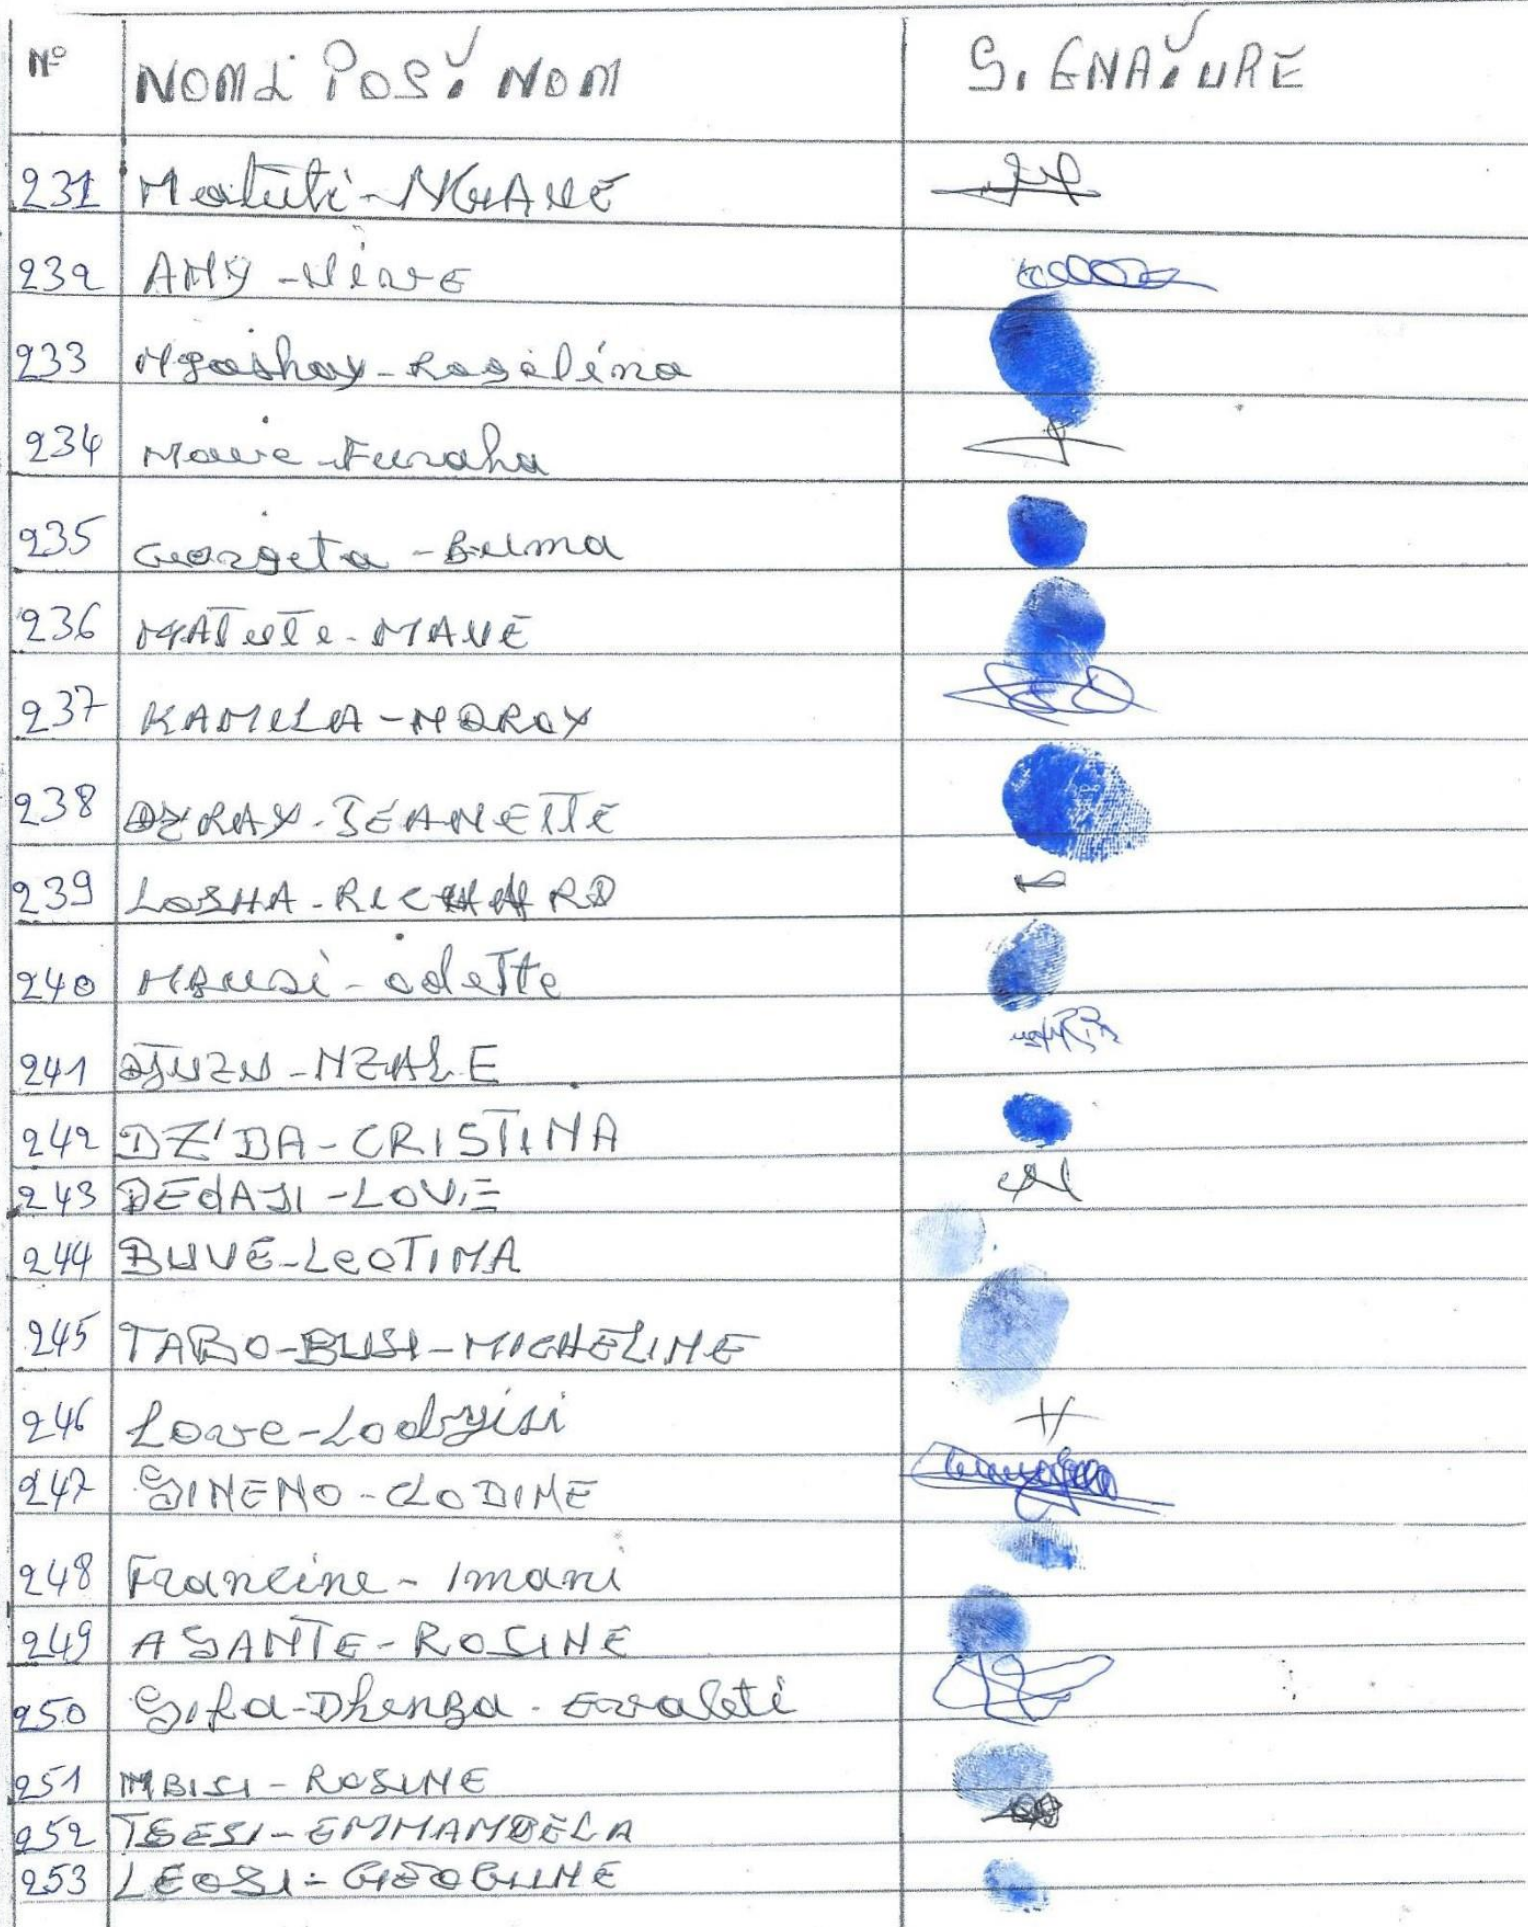 N° NOM & POST NOM SIGNATURE
231 Matuti-NGAVE
232 AMY-Vive
233 Ngashay-Rosalina
234 Mave-Furaha
235 Georgeta-Buma
236 MATUTE-MAVE
237 KAMILA-MOROY
238 DZRAY-JEANETTE
239 LOSHA-RICHARD
240 MBUSI-odette
241 DJUZU-NZALE
242 DZ'BA-CRISTINA
243 DEDAJI-LOVE
244 BUVE-LEOTINA
245 TABO-BUSI-MICHELINE
246 Love-Lodyisi
247 GINENO-CLODINE
248 Francine-Imani
249 ASANTE-ROSINE
250 Sifa-Dhenga-Evaleti
251 MBISI-ROSINE
252 TSESI-EMMANUELA
253 LEOSI-